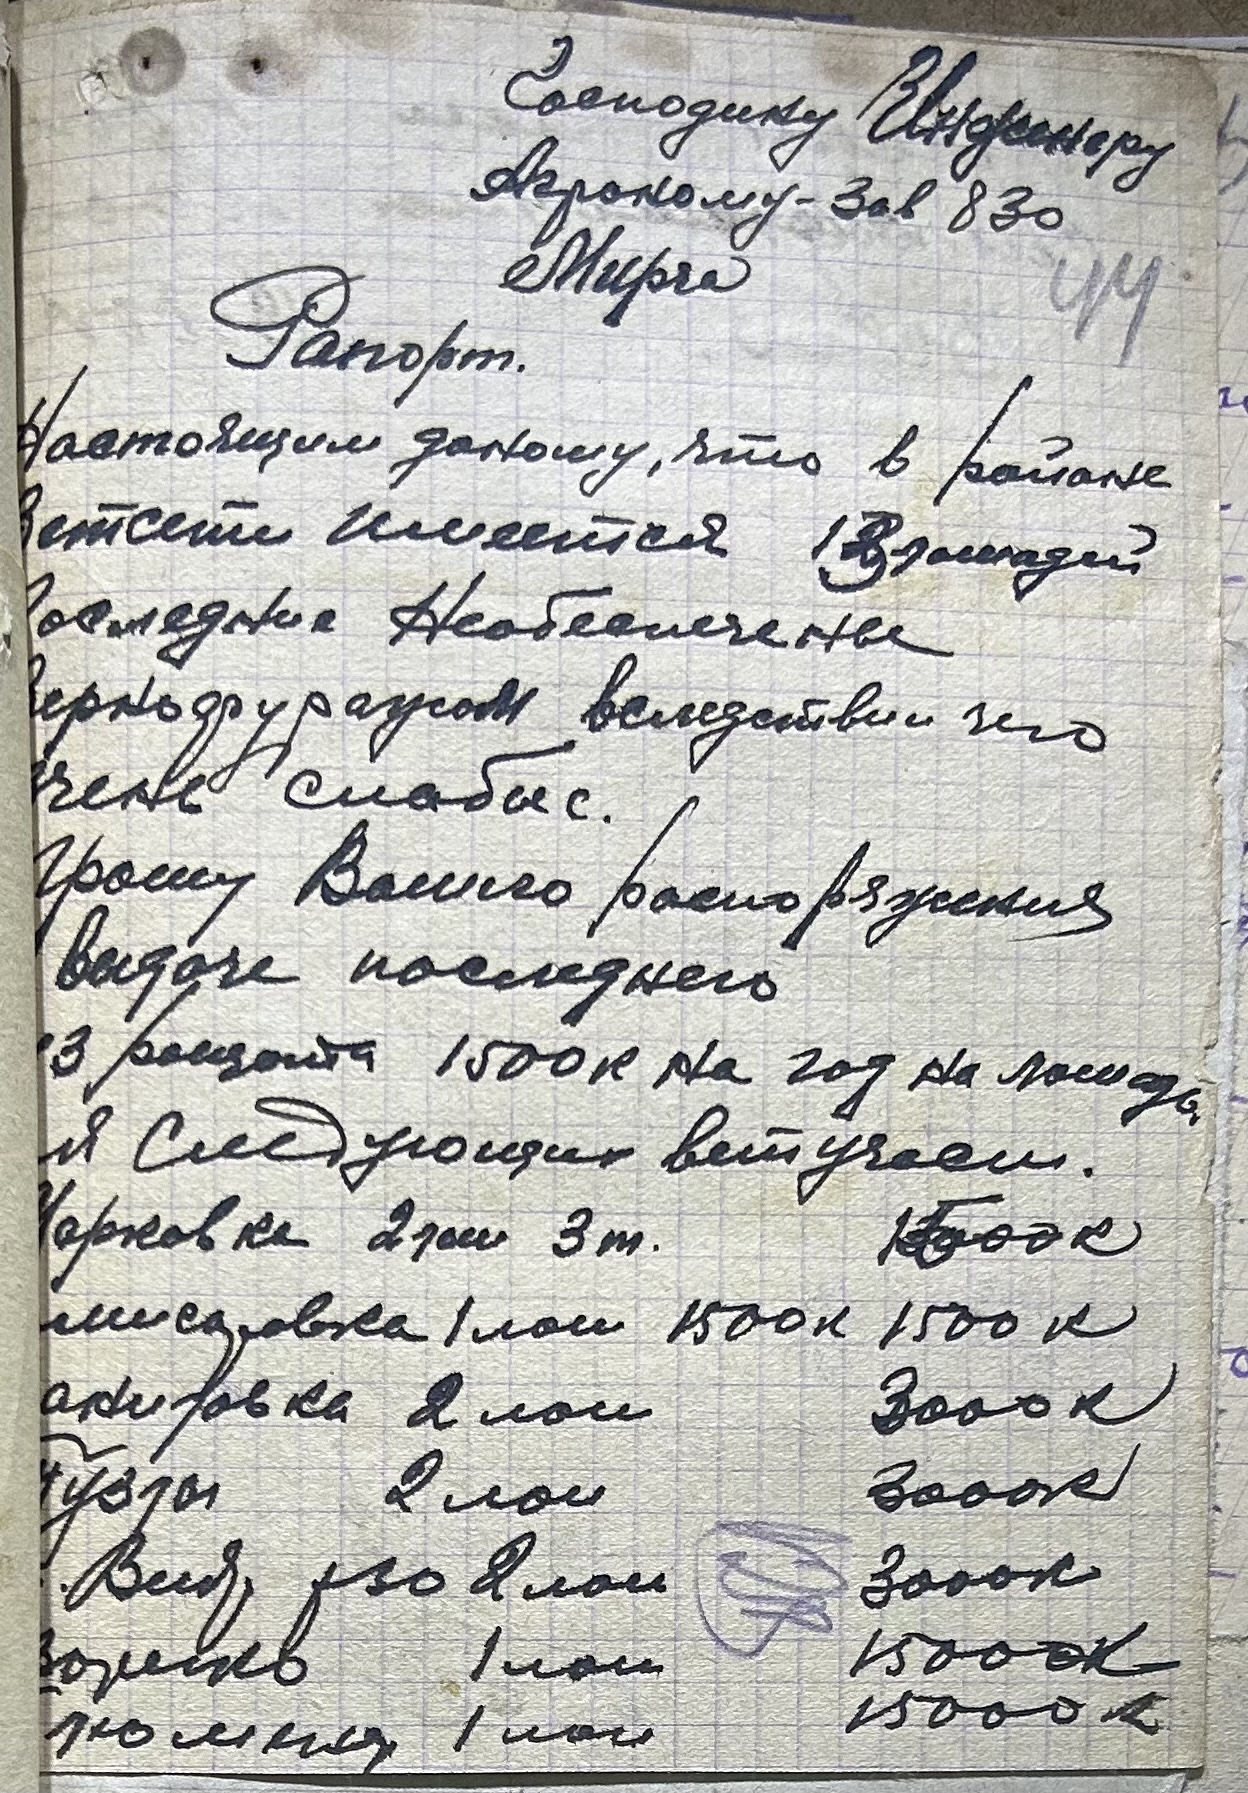 Господину Инженеру
Агроному - Зав 830
Мирча
44
Рапорт.
Настоящим доношу, что в районе
Ветсети имеется 13 лошадей
Последние необеспечены
зернофуражом вследствии чего
очень слабые.
Прошу Вашего распоряжения
выдаче последнего
из расчета 1500к на год на лошадь,
для следующих ветучаст.
Марковка 2 лош 3 т.
1500к 1500 к
2 лош 3000 к
2 лош 3000к
2 лош 3000к
1 лош 15000к
1 лош 15000 к